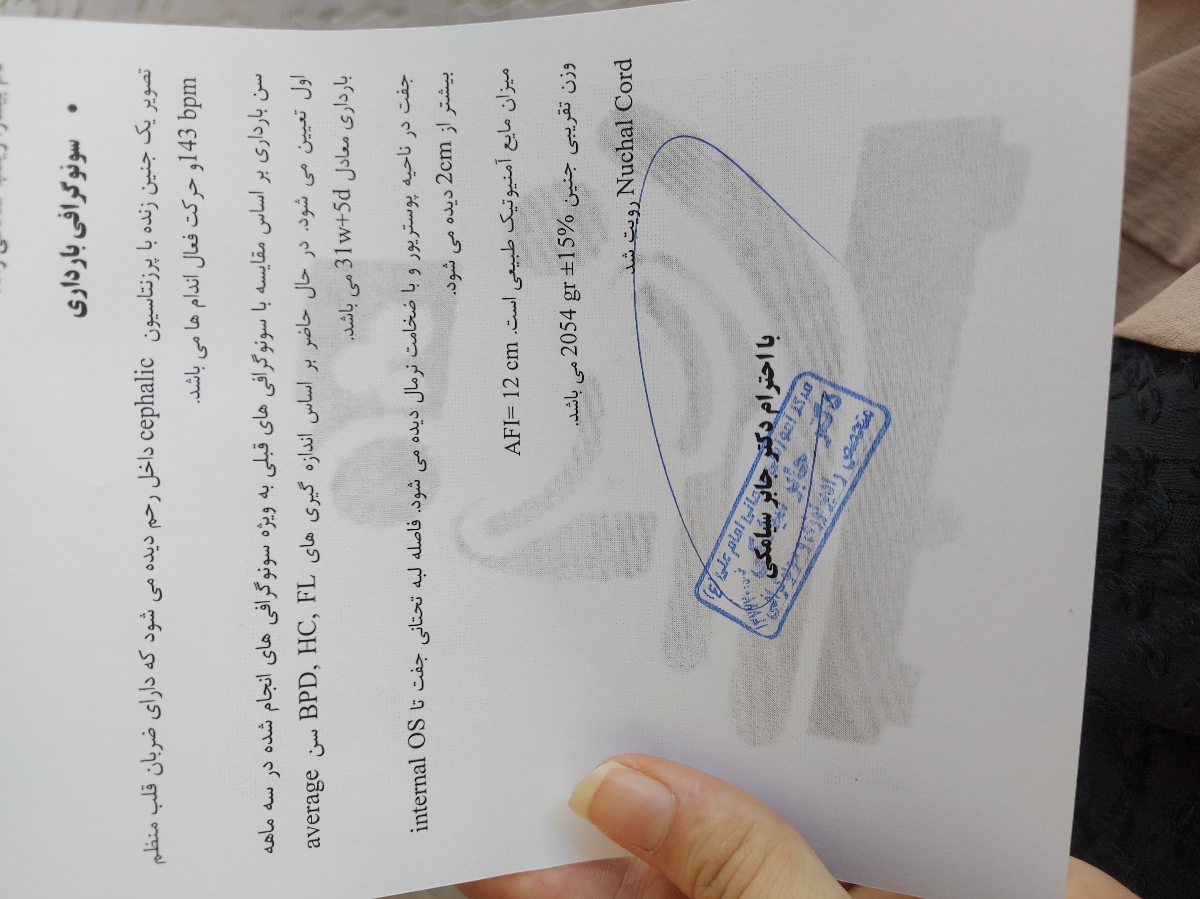 • سونوگرافی بارداری
تصویر یک جنین زنده با پرزنتاسیون cephalic داخل رحم دیده می شود که دارای ضربان قلب منظم
143 bpm و حرکت فعال اندام ها می باشد.
سن بارداری بر اساس مقایسه با سونوگرافی های قبلی به ویژه سونوگرافی های انجام شده در سه ماهه
اول تعیین می شود. در حال حاضر بر اساس اندازه گیری های BPD, HC, FL سن average
بارداری معادل 31w+5d می باشد.
جفت در ناحیه پوستریور و با ضخامت نرمال دیده می شود. فاصله لبه تحتانی جفت تا internal OS
بیشتر از 2cm دیده می شود.
میزان مایع آمنیوتیک طبیعی است. AFI= 12 cm
وزن تقریبی جنین 2054 gr ±15% می باشد.
Nuchal Cord رویت شد
با احترام دکتر جابر سیامکی
دکتر جابر
متخصص رادیولوژی و سونوگرافی